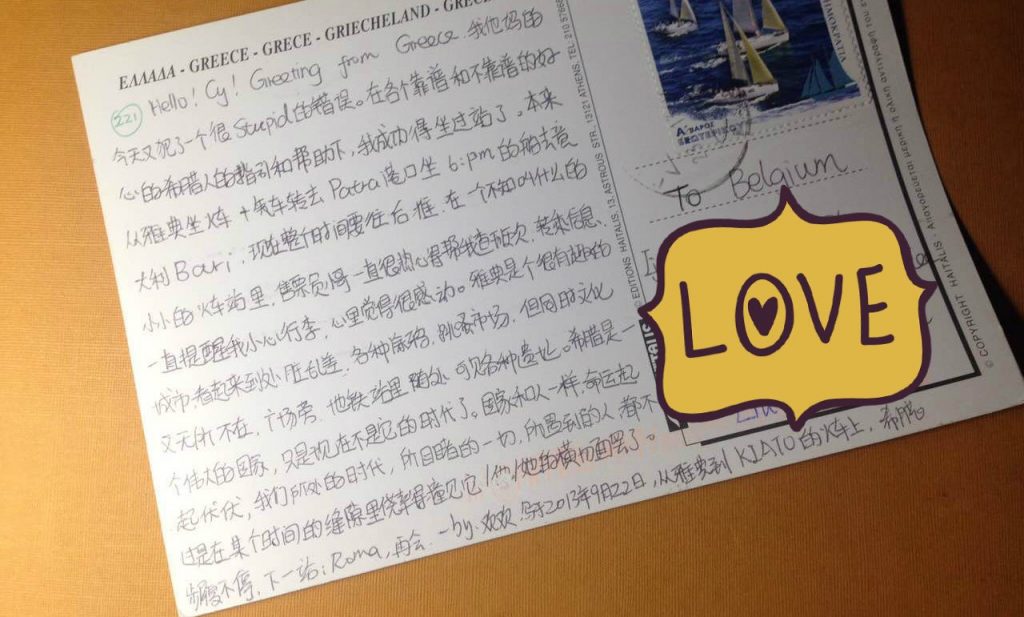 ΕΛΛΑΔΑ - GREECE - GRECE - GRIECHELAND - GREC
221
Hello! Cy! Greeting from Greece. 我他妈的
今天又犯了一个很Stupid的错误。在各个靠谱和不靠谱的好
心的希腊人的指引和帮助下,我成功得坐过站了。本来
从雅典坐火车+汽车转去Patra港口坐6:pm的船去意
大利Bari,现在整个时间要往后推,在一个不知叫什么的
小小的火车站里,售票员哥一直很热心得帮我查班次,转乘信息,
一直提醒我小心行李,心里觉得很感动。雅典是个很有趣的
城市,看起来到处脏乱差,各种麻烦,跳蚤市场,但同时文化
又无所不在,广场旁,地铁站里随处可见各种遗址。希腊是一
个伟大的国家,只是现在不是它的时代了。国家和人一样,命运起
起伏伏,我们所处的时代,所目睹的一切,所遇到的人都不
过是在某个时间的缝隙里侥幸得撞见它/他/她的横切面罢了。
步履不停,下一站:Roma,再会 -by.欢欢,写于2013年9月22日,从雅典到KIATO的火车上,希腊
© EDITIONS HAITALIS, 13, ASTROUS STR., 13121 ATHENS, TEL. 210 5
ΗΜΟΚΡΑΤΙΑ
Α' ΒΑΡΟΣ
ΕΣΩΤΕΡΙΚΟΥ
To Belgium
LOVE
© COPYRIGHT HAITALIS - Απαγορεύεται